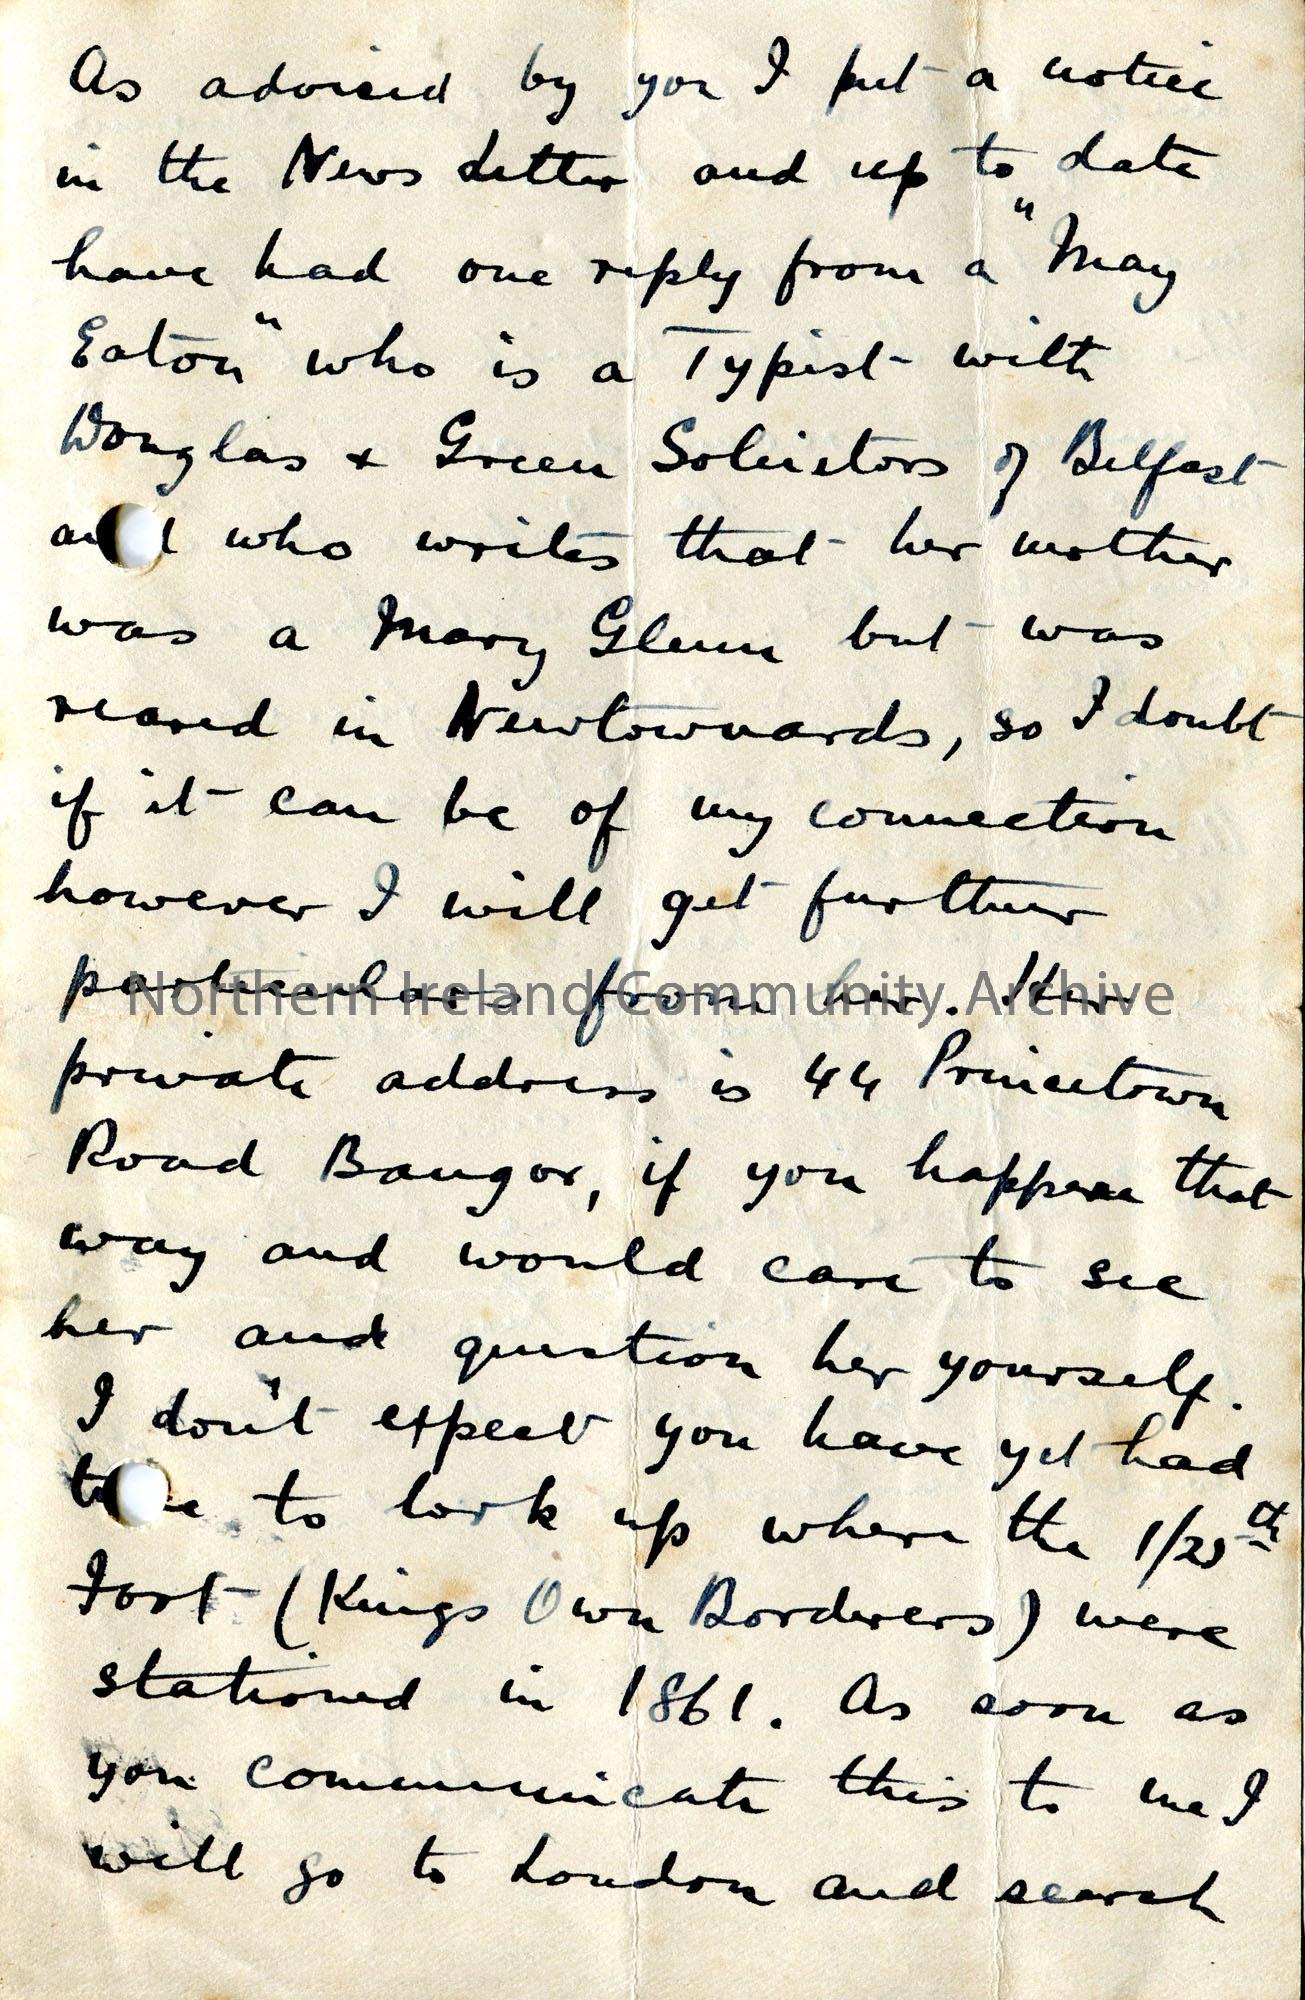 As advised by you I put a notice
in the News Letter and up to date
have had one reply from a "May
Eaton" who is a Typist with
Douglas & Green Solicitors of Belfast
and who writes that her mother
was a Mary Glenn but was
reared in Newtownards, so I doubt
if it can be of my connection
however I will get further
particulars from her. Her
Northern Ireland Community Archive
private address is 44 Princetown
Road Bangor, if you happen that
way and would care to see
her and question her yourself.
I don't expect you have yet had
time to look up where the 1/25th
Foot (Kings Own Borderers) were
stationed in 1861. As soon as
you communicate this to me I
will go to London and search